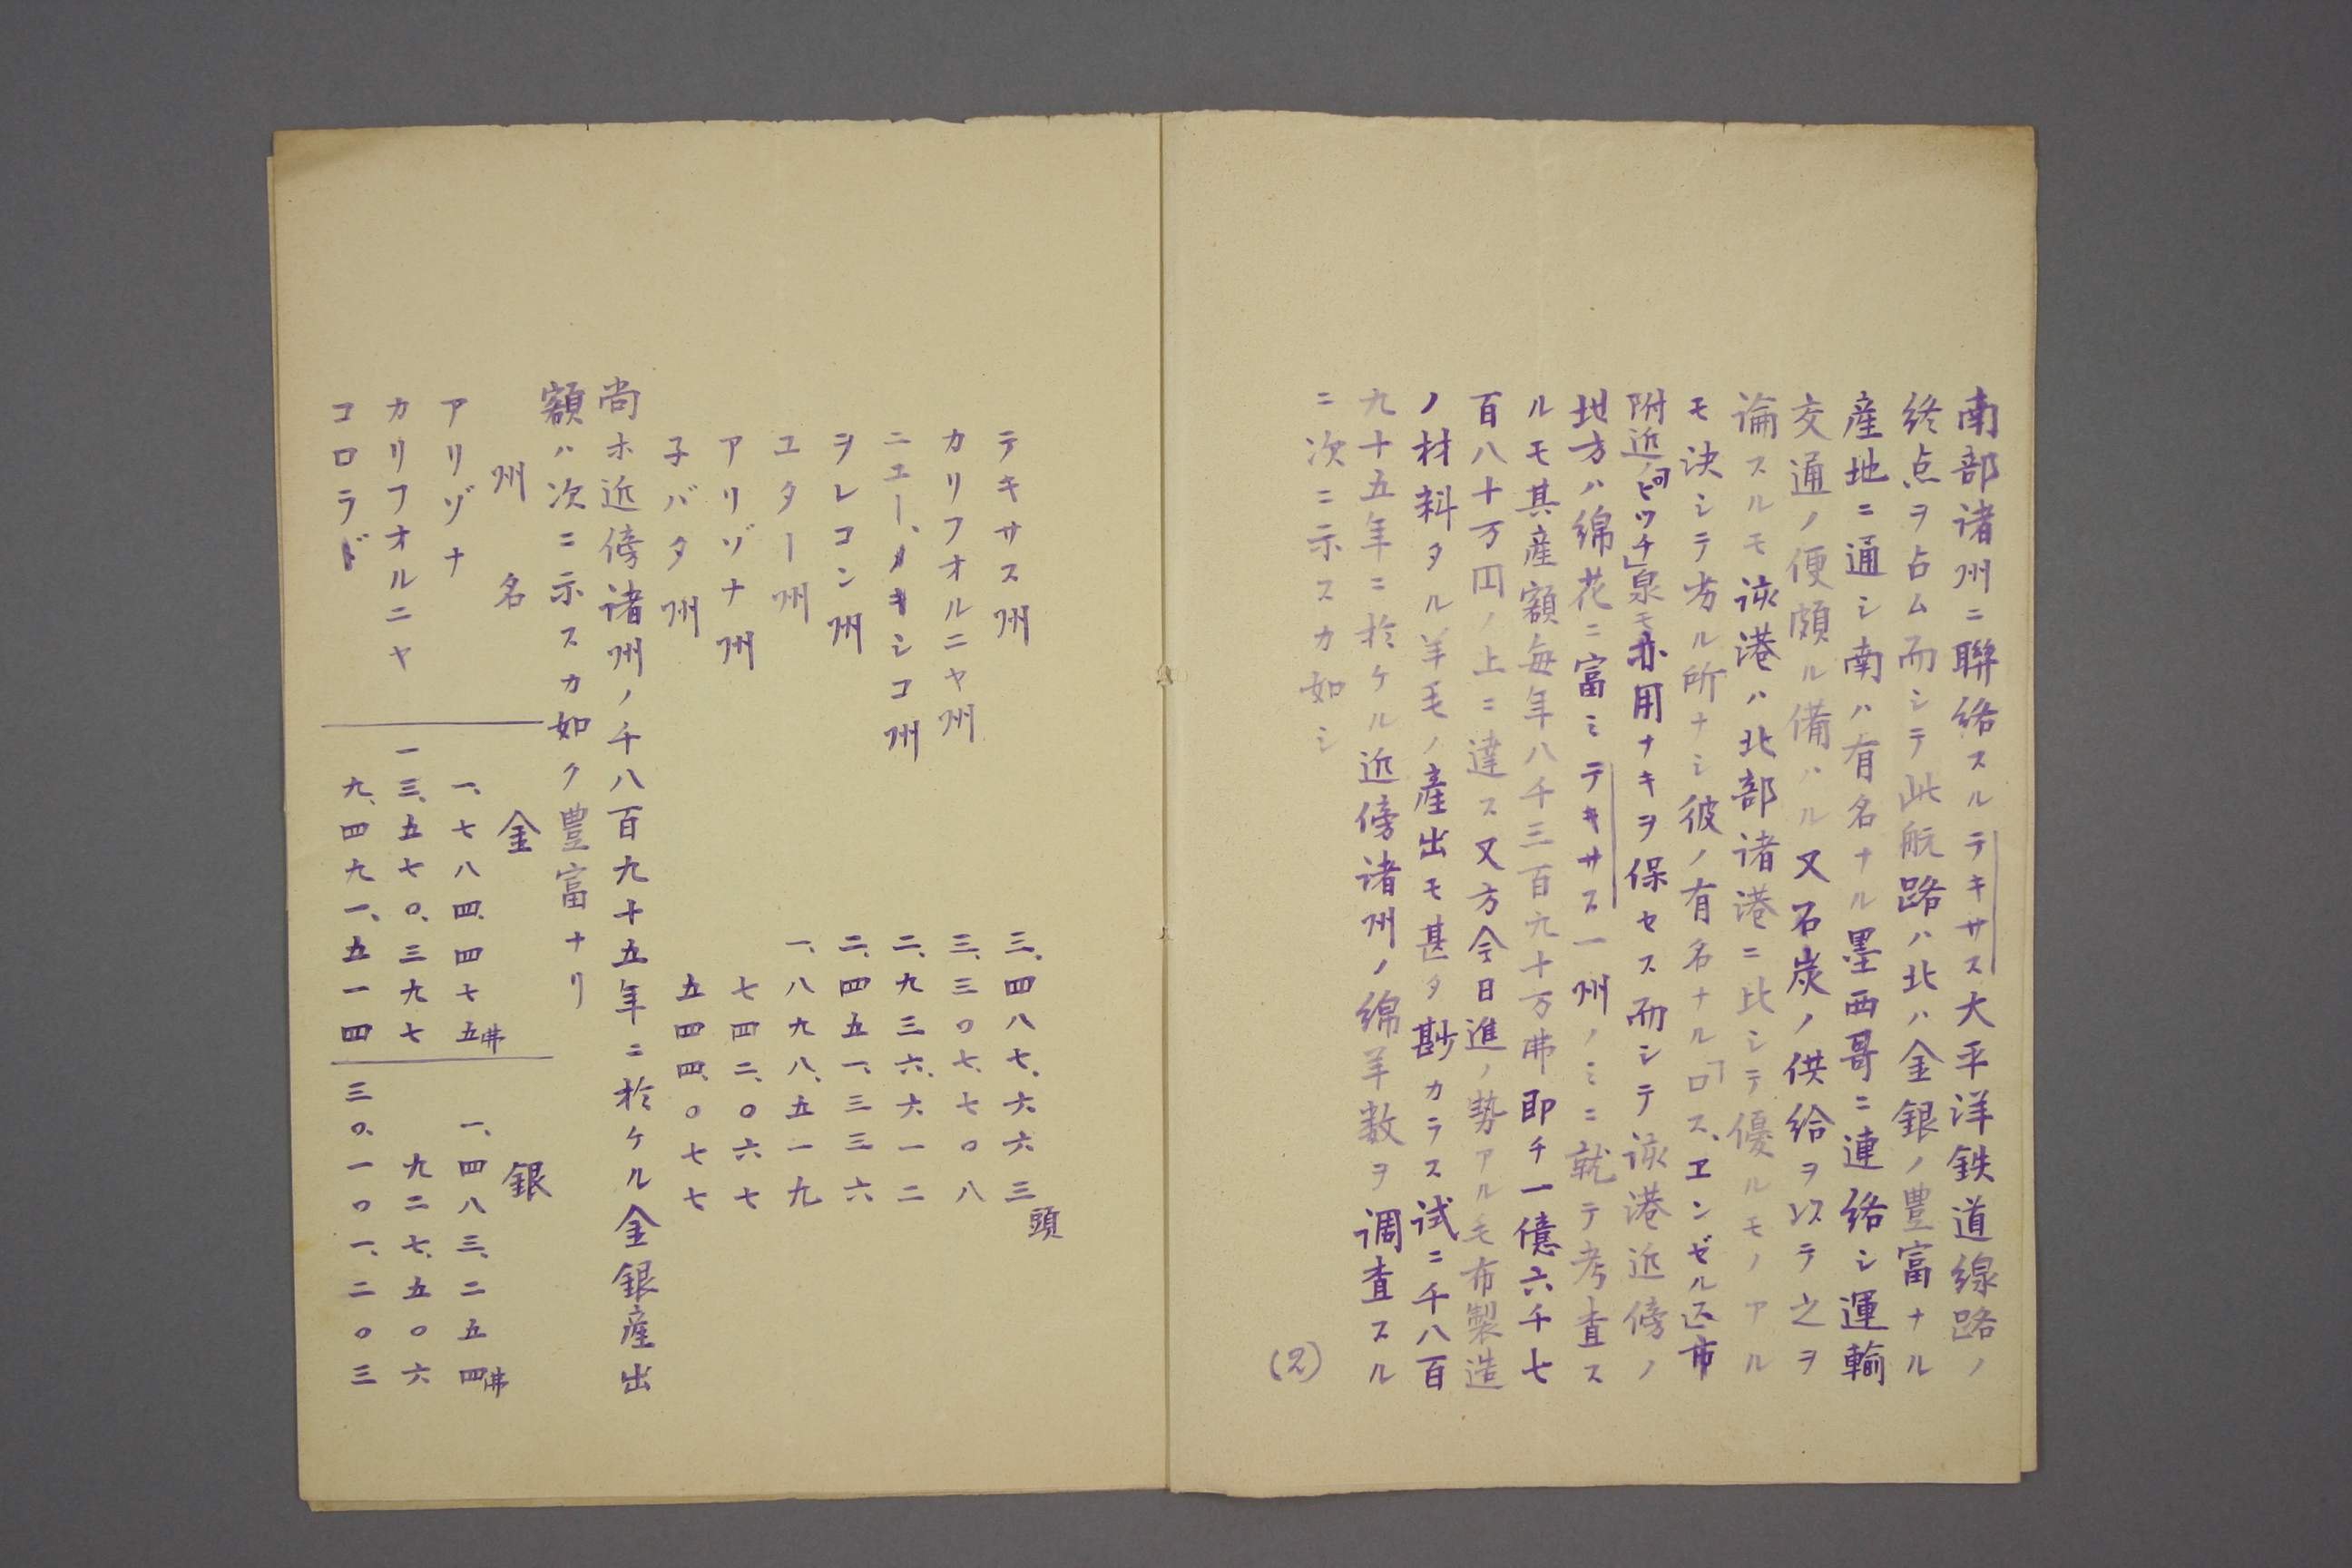 南部諸州ニ聯絡スルテキサス大平洋鉄道線路ノ
終点ヲ占ム而シテ此航路ハ北ハ金銀ノ豊富ナル
産地ニ通シ南ハ有名ナル墨西哥ニ連絡シ運輸
交通ノ便頗ル備ハル又石炭ノ供給ヲ以テ之ヲ
論スルモ該港ハ北部諸港ニ比シテ優ルモノアル
モ決シテ劣ル所ナシ彼ノ有名ナル「ロス、エンゼル」市
附近ノ「ピツチ」泉モ亦用ナキヲ保セス而シテ該港近傍ノ
地方ハ綿花ニ富ミテキサス一州ノミニ就テ考査ス
ルモ其産額毎年八千三百九十万弗即チ一億六千七
百八十万円ノ上ニ達ス又方今日進ノ勢アル毛布製造
ノ材料タル羊毛ノ産出モ甚タ尠カラス試ニ千八百
九十五年ニ於ケル近傍諸州ノ綿羊数ヲ調査スル
ニ次ニ示スカ如シ
(2)
テキサス州 三、四八七、六六三頭
カリフオルニヤ州 三、三〇七、七〇八
ニエー、メキシコ州 二、九三六、六一二
ヲレコン州 二、四五一、三三六
ユター州 一、八九八、五一九
アリゾナ州 七四二、〇六七
子バタ州 五四四、〇七七
尚ホ近傍諸州ノ千八百九十五年ニ於ケル金銀産出
額ハ次ニ示スカ如ク豊富ナリ
州名 金 銀
アリゾナ 一、七八四、四七五弗 一、四八三、二五四弗
カリフオルニヤ 一三、五七〇、三九七 九二七、五〇六
コロラド 九、四九一、五一四 三〇、一〇一、二〇三